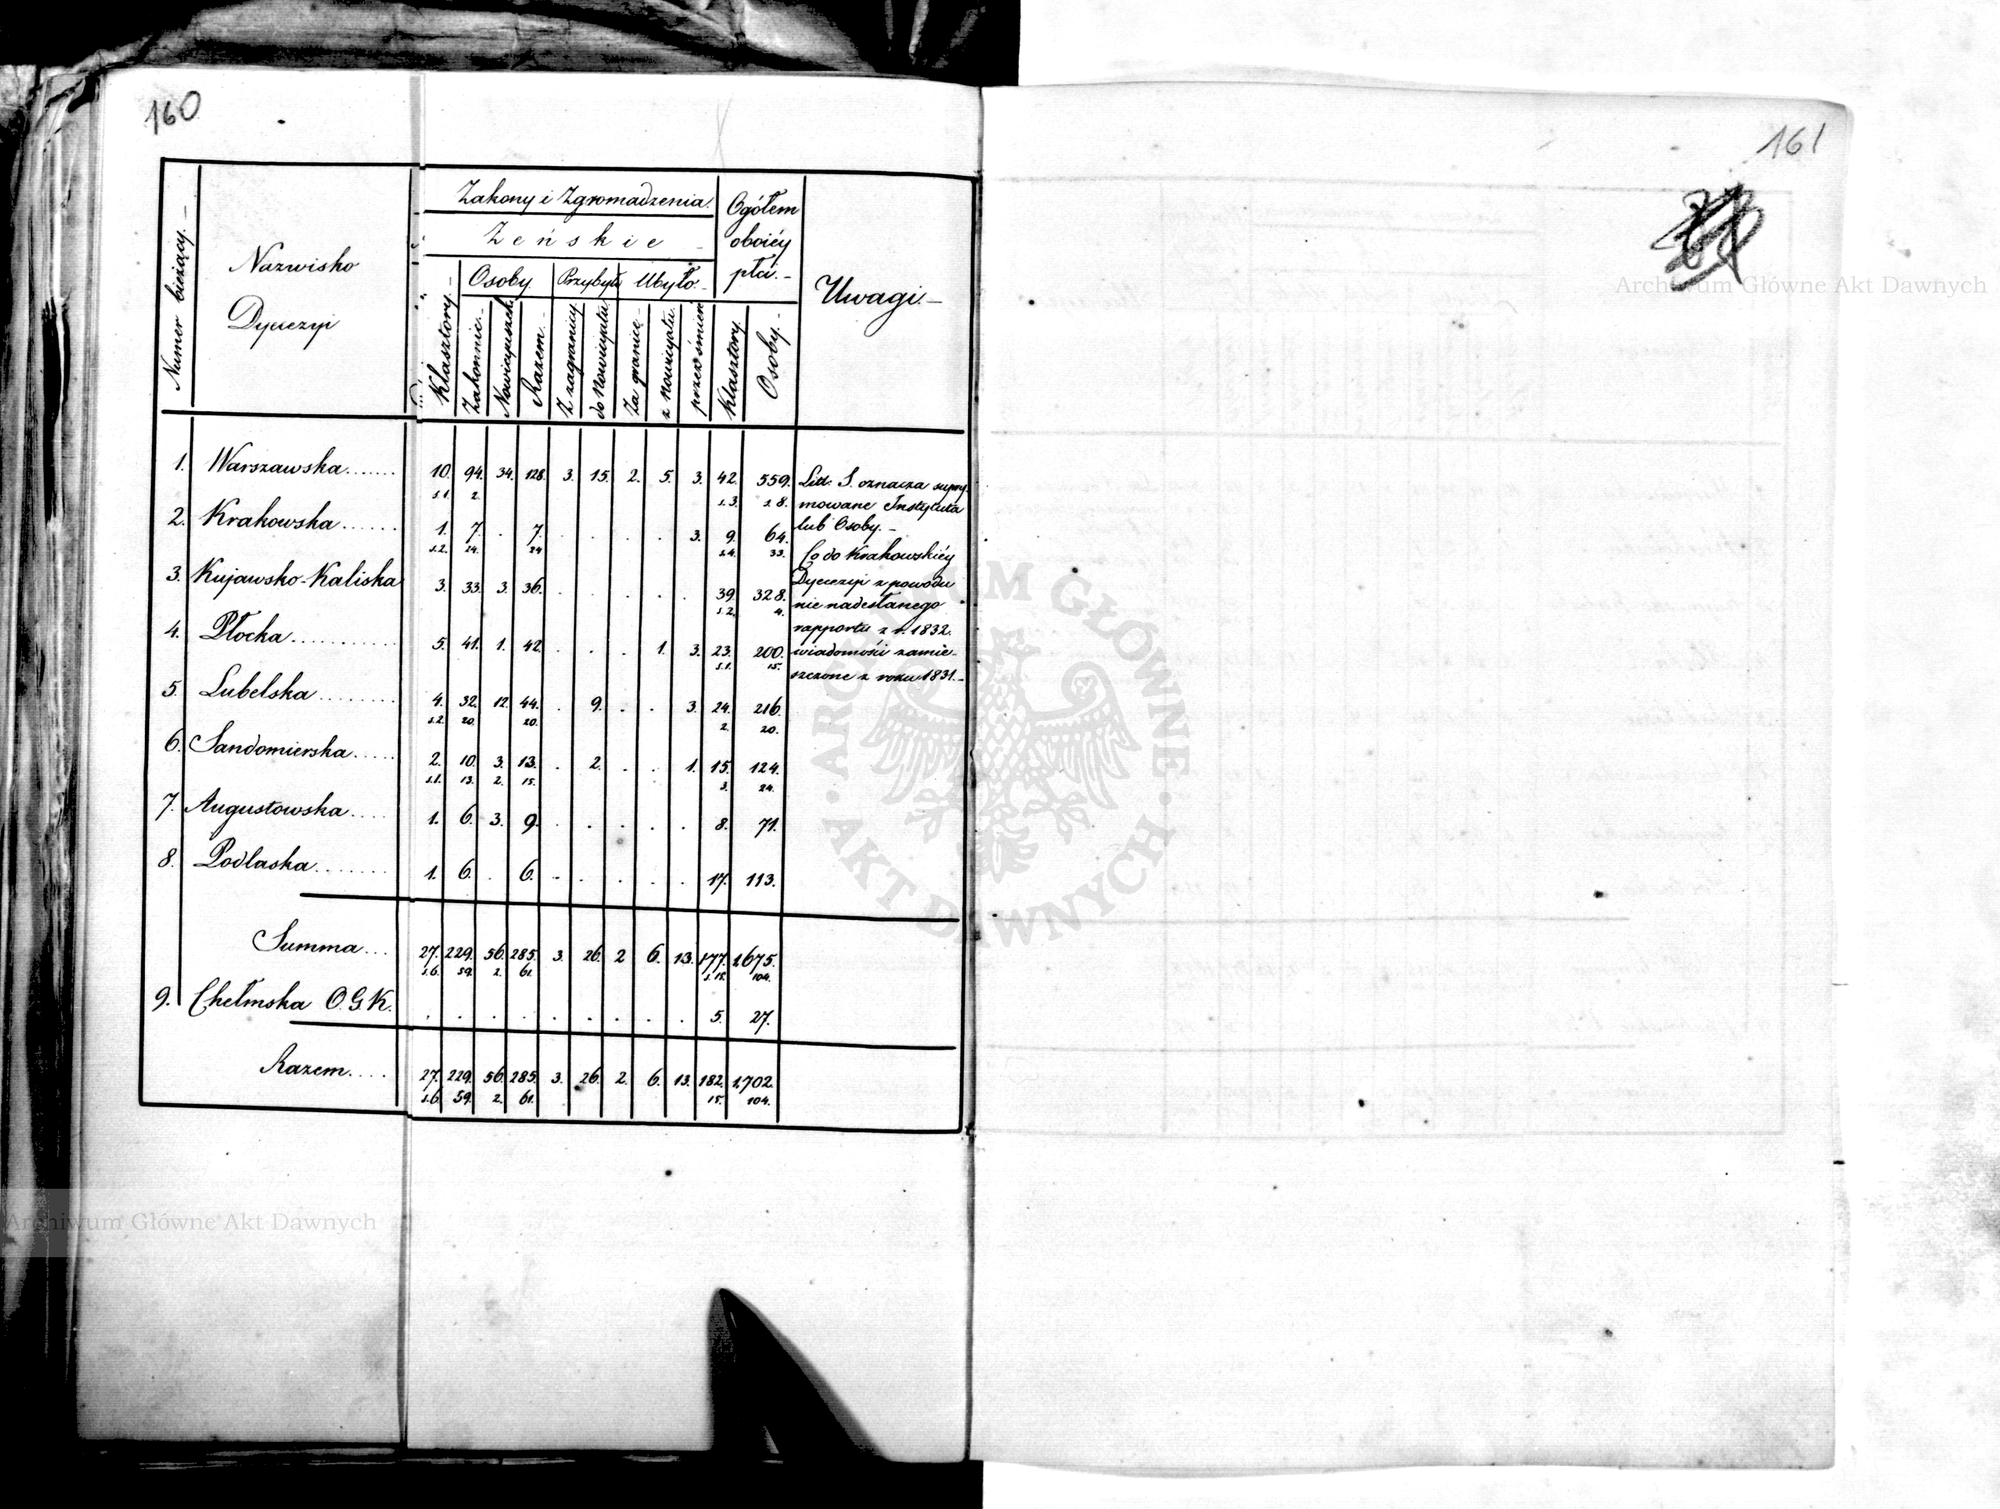 160
161
Zakony i Zgromadzenia.
Żeńskie
Numer bieżący.
Nazwisko
Dyecezyi
Osoby
Przybyło
Ubyło
Ogółem
oboiéy
płci.
Uwagi.
Klasztory. Zakonnic. Nowicyuszek. Razem. Z zagranicy do Nowicyatu. Za granicę z Nowicyatu. przez śmierć Klasztory. Osoby.
1. Warszawska....... 10. 94. 34. 128. 3. 15. 2. 5. 3. 42. 559.
s.1. 2. s.3. s.8.
2. Krakowska....... 1. 7. . 7. . . . . 3. 9. 64.
s.2. 24. 24 s.4. 33.
3. Kujawsko-Kaliska 3. 33. 3. 36. . . . . . 39. 328.
s.2. 4.
4. Płocka........... 5. 41. 1. 42. . . . 1. 3. 23. 200.
s.1. 15.
5. Lubelska......... 4. 32. 12. 44. . 9. . . 3. 24. 216.
s.2. 20. 20. 2. 20.
6. Sandomierska..... 2. 10. 3. 13. . 2. . . 1. 15. 124.
s.1. 13. 2. 15. 3. 24.
7. Augustowska.... 1. 6. 3. 9. . . . . . 8. 71.
8. Podlaska........ 1. 6. . 6. . . . . . 17. 113.
Summa... 27. 229. 56. 285. 3. 26. 2 6. 13. 177. 1675.
s.6. 59. 2. 61. s.15. 104.
9. Chełmska O.G.K. . . . . . . . . . 5. 27.
Razem.... 27. 229. 56. 285. 3. 26. 2. 6. 13. 182. 1702.
s.6. 59. 2. 61. 15. 104.
Litt. S. oznacza supry-
mowane Instytuta
lub Osoby.
Co do Krakowskiéy
Dyecezyi z powodu
nie nadesłanego
rapportu z r. 1832.
wiadomości zamie-
szczone z roku 1831.
Archiwum Główne Akt Dawnych
ARCHIWUM GŁÓWNE
AKT DAWNYCH
Archiwum Główne Akt Dawnych